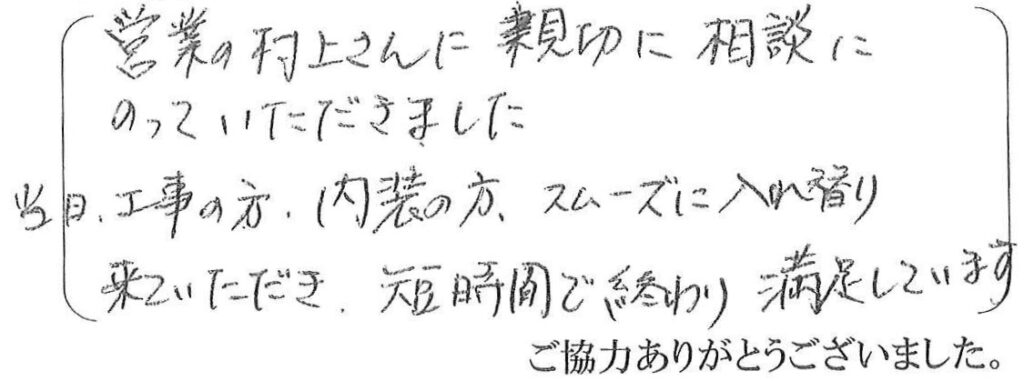 営業の村上さんに親切に相談に
のっていただきました
当日、工事の方、内装の方、スムーズに入れ替り
来ていただき、短時間で終わり満足しています
ご協力ありがとうございました。